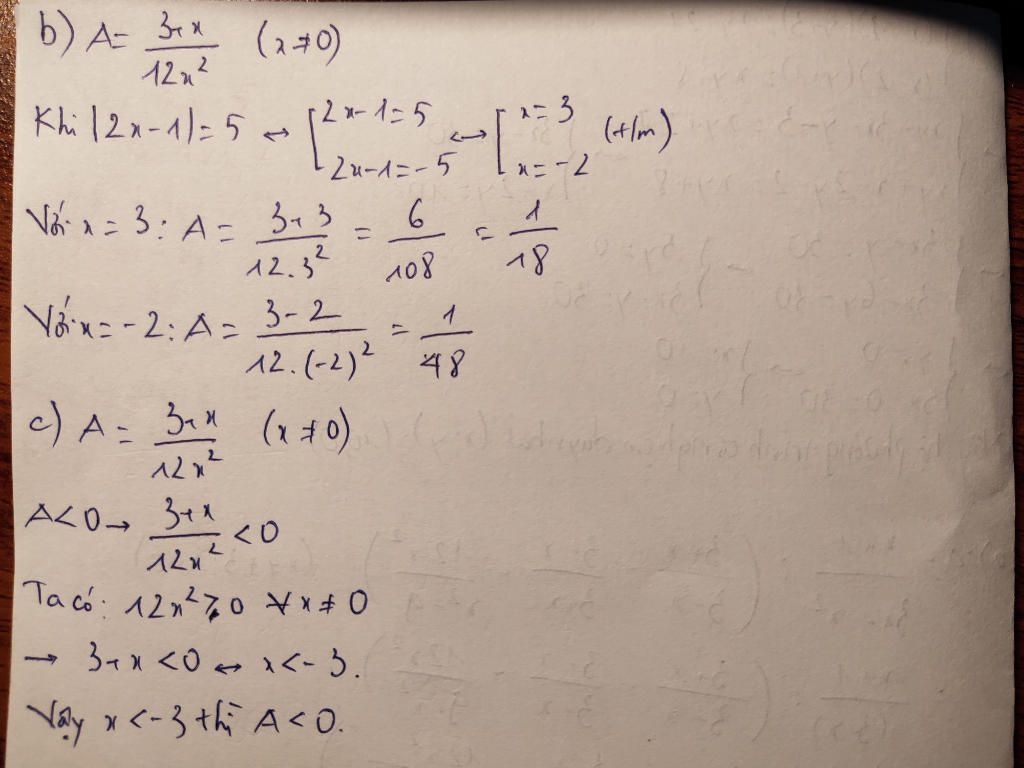 b) A = (3+x)/(12x²) (x ≠ 0)
Khi |2x-1| = 5 ↔ [2x-1=5 ; 2x-1=-5 ↔ [x=3 ; x=-2 (t/m)
Với x = 3: A = (3+3)/(12.3²) = 6/108 = 1/18
Với x = -2: A = (3-2)/(12.(-2)²) = 1/48
c) A = (3+x)/(12x²) (x ≠ 0)
A<0 → (3+x)/(12x²) < 0
Ta có: 12x² ≥ 0 ∀x ≠ 0
→ 3+x <0 ↔ x<-3.
Vậy x <-3 thì A < 0.